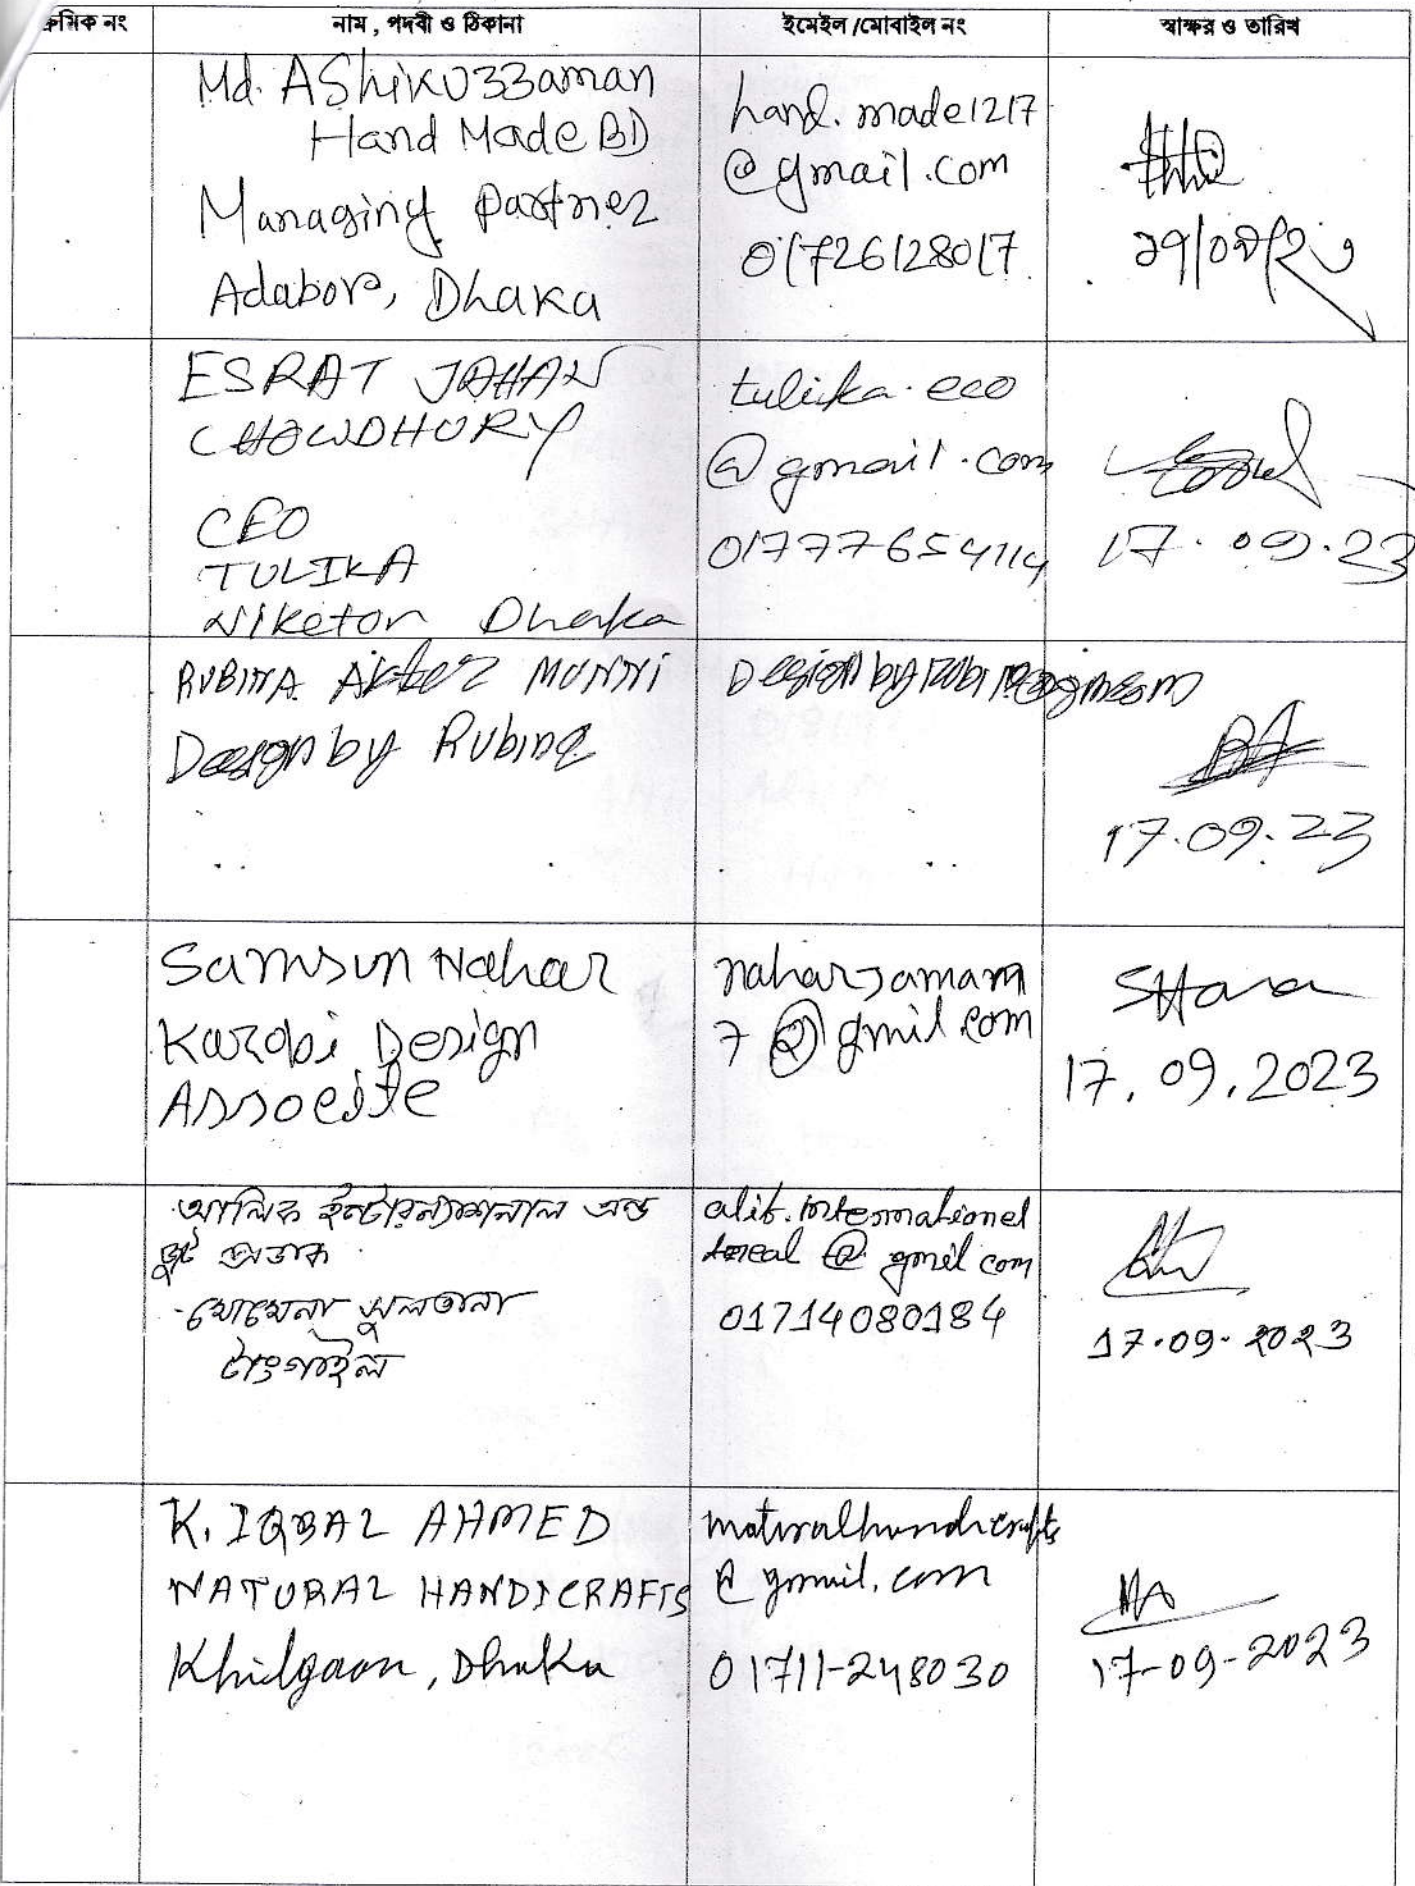 ক্রমিক নং নাম , পদবী ও ঠিকানা ইমেইল /মোবাইল নং স্বাক্ষর ও তারিখ
Md. AShikuzzaman
Hand Made BD
Managing Partner
Adabor, Dhaka
hand.made1217
@gmail.com
01726128017
১৭/০৯/২৩
ESRAT JAHAN
CHOWDHURY
CEO
TULIKA
Niketon Dhaka
tulika.eco
@gmail.com
01777654114
17.09.23
RUBINA Akter MUNNI
Design by Rubina
17.09.23
Samsun Nahar
Karobi Design
Associte
naharsamam
7@gmil com
17.09.2023
আলিফ ইন্টারন্যাশনাল এন্ড
মোমেনা সুলতানা
টাংগাইল
alif.international
@ gmil com
01714080184
17.09.2023
K. IQBAL AHMED
NATURAL HANDICRAFTS
Khilgaon, Dhaka
naturalhandicrafts
@gmail.com
01711-248030
17-09-2023